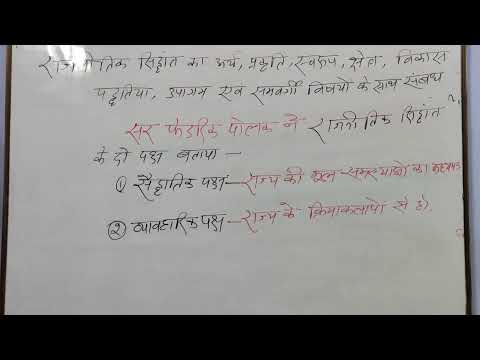 राजनीतिक सिद्धांत का अर्थ, प्रकृति, स्वरूप, क्षेत्र, विकास
पद्धतिया, उपागम एवं समवर्गी विषयों के साथ संबंध
सर फेडरिक पोलक ने राजनीतिक सिद्धांत
के दो पक्ष बताया —
① सैद्धांतिक पक्ष — राज्य की मूल-समस्याओं का
② व्यावहारिक पक्ष — राज्य के क्रियाकलापों से है।